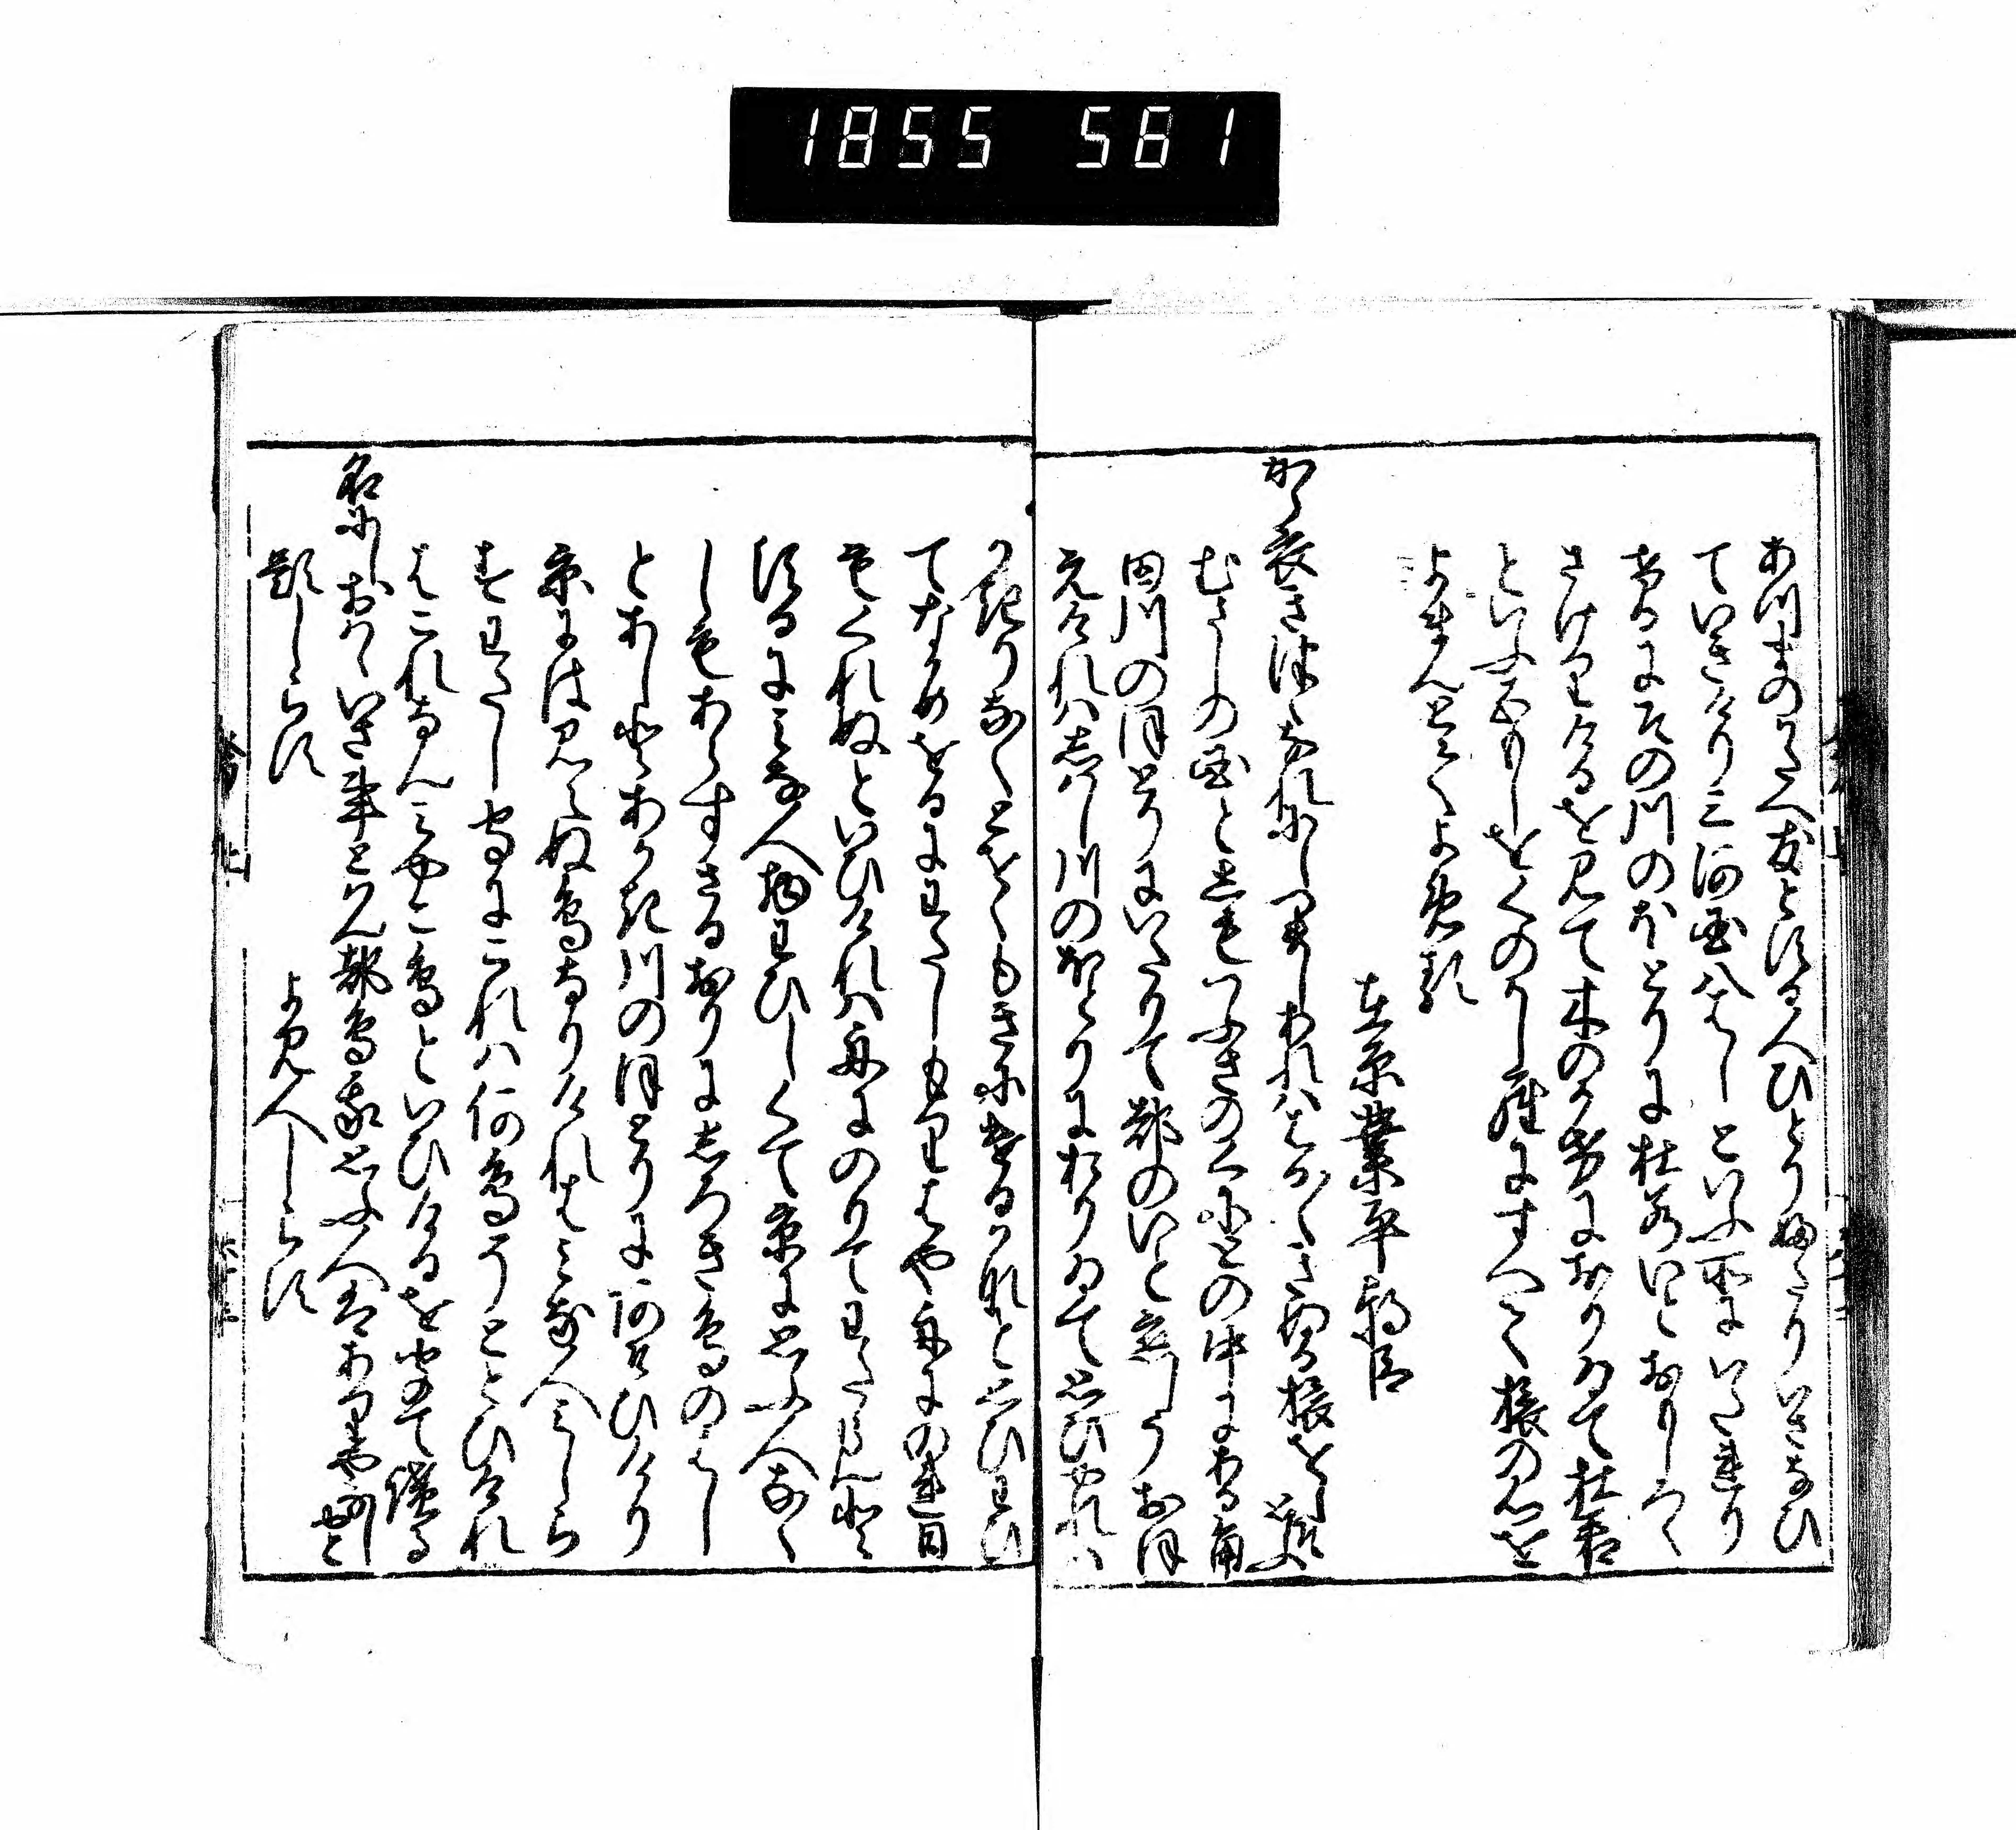 1855 581
あつまのかたへ友とする人ひとりふたりいさなひ
ていきけり三河国八はしといふ所にいたれり
けるにその川のほとりに杜若いとおもしろく
さけりけるを見て木のかけにおりゐて杜若
といふ五もしをくのかしらにすへて旅の心を
よまんとてよめる
在原業平朝臣
から衣きつゝなれにしつましあれははる〱きぬる旅をしそ思
むさしの国としもつふさの国との中にある角
田川のほとりにいたりて都のいと恋しうおほ
えけれはしはし川のほとりにおりゐて思ひやれは
かきりなくとをくもきにけるかなと思ひわひ
てなかめをるにわたしもりはや舟にのれ日
もくれぬといひけれは舟にのりてわたらんと
するにみな人物わひしくて京に思ふ人なく
しもあらすさるおりにしろき鳥のはし
とあしとあかき川のほとりにあそひけり
京には見えぬ鳥なりけれはみな人見しら
すわたし守にこれは何鳥そととひけれ
はこれなんみやこ鳥といひけるを聞て讀る
名にしおはゝいさ事とはん都鳥我思ふ人は有やなしやと
題しらす　よみ人しらす